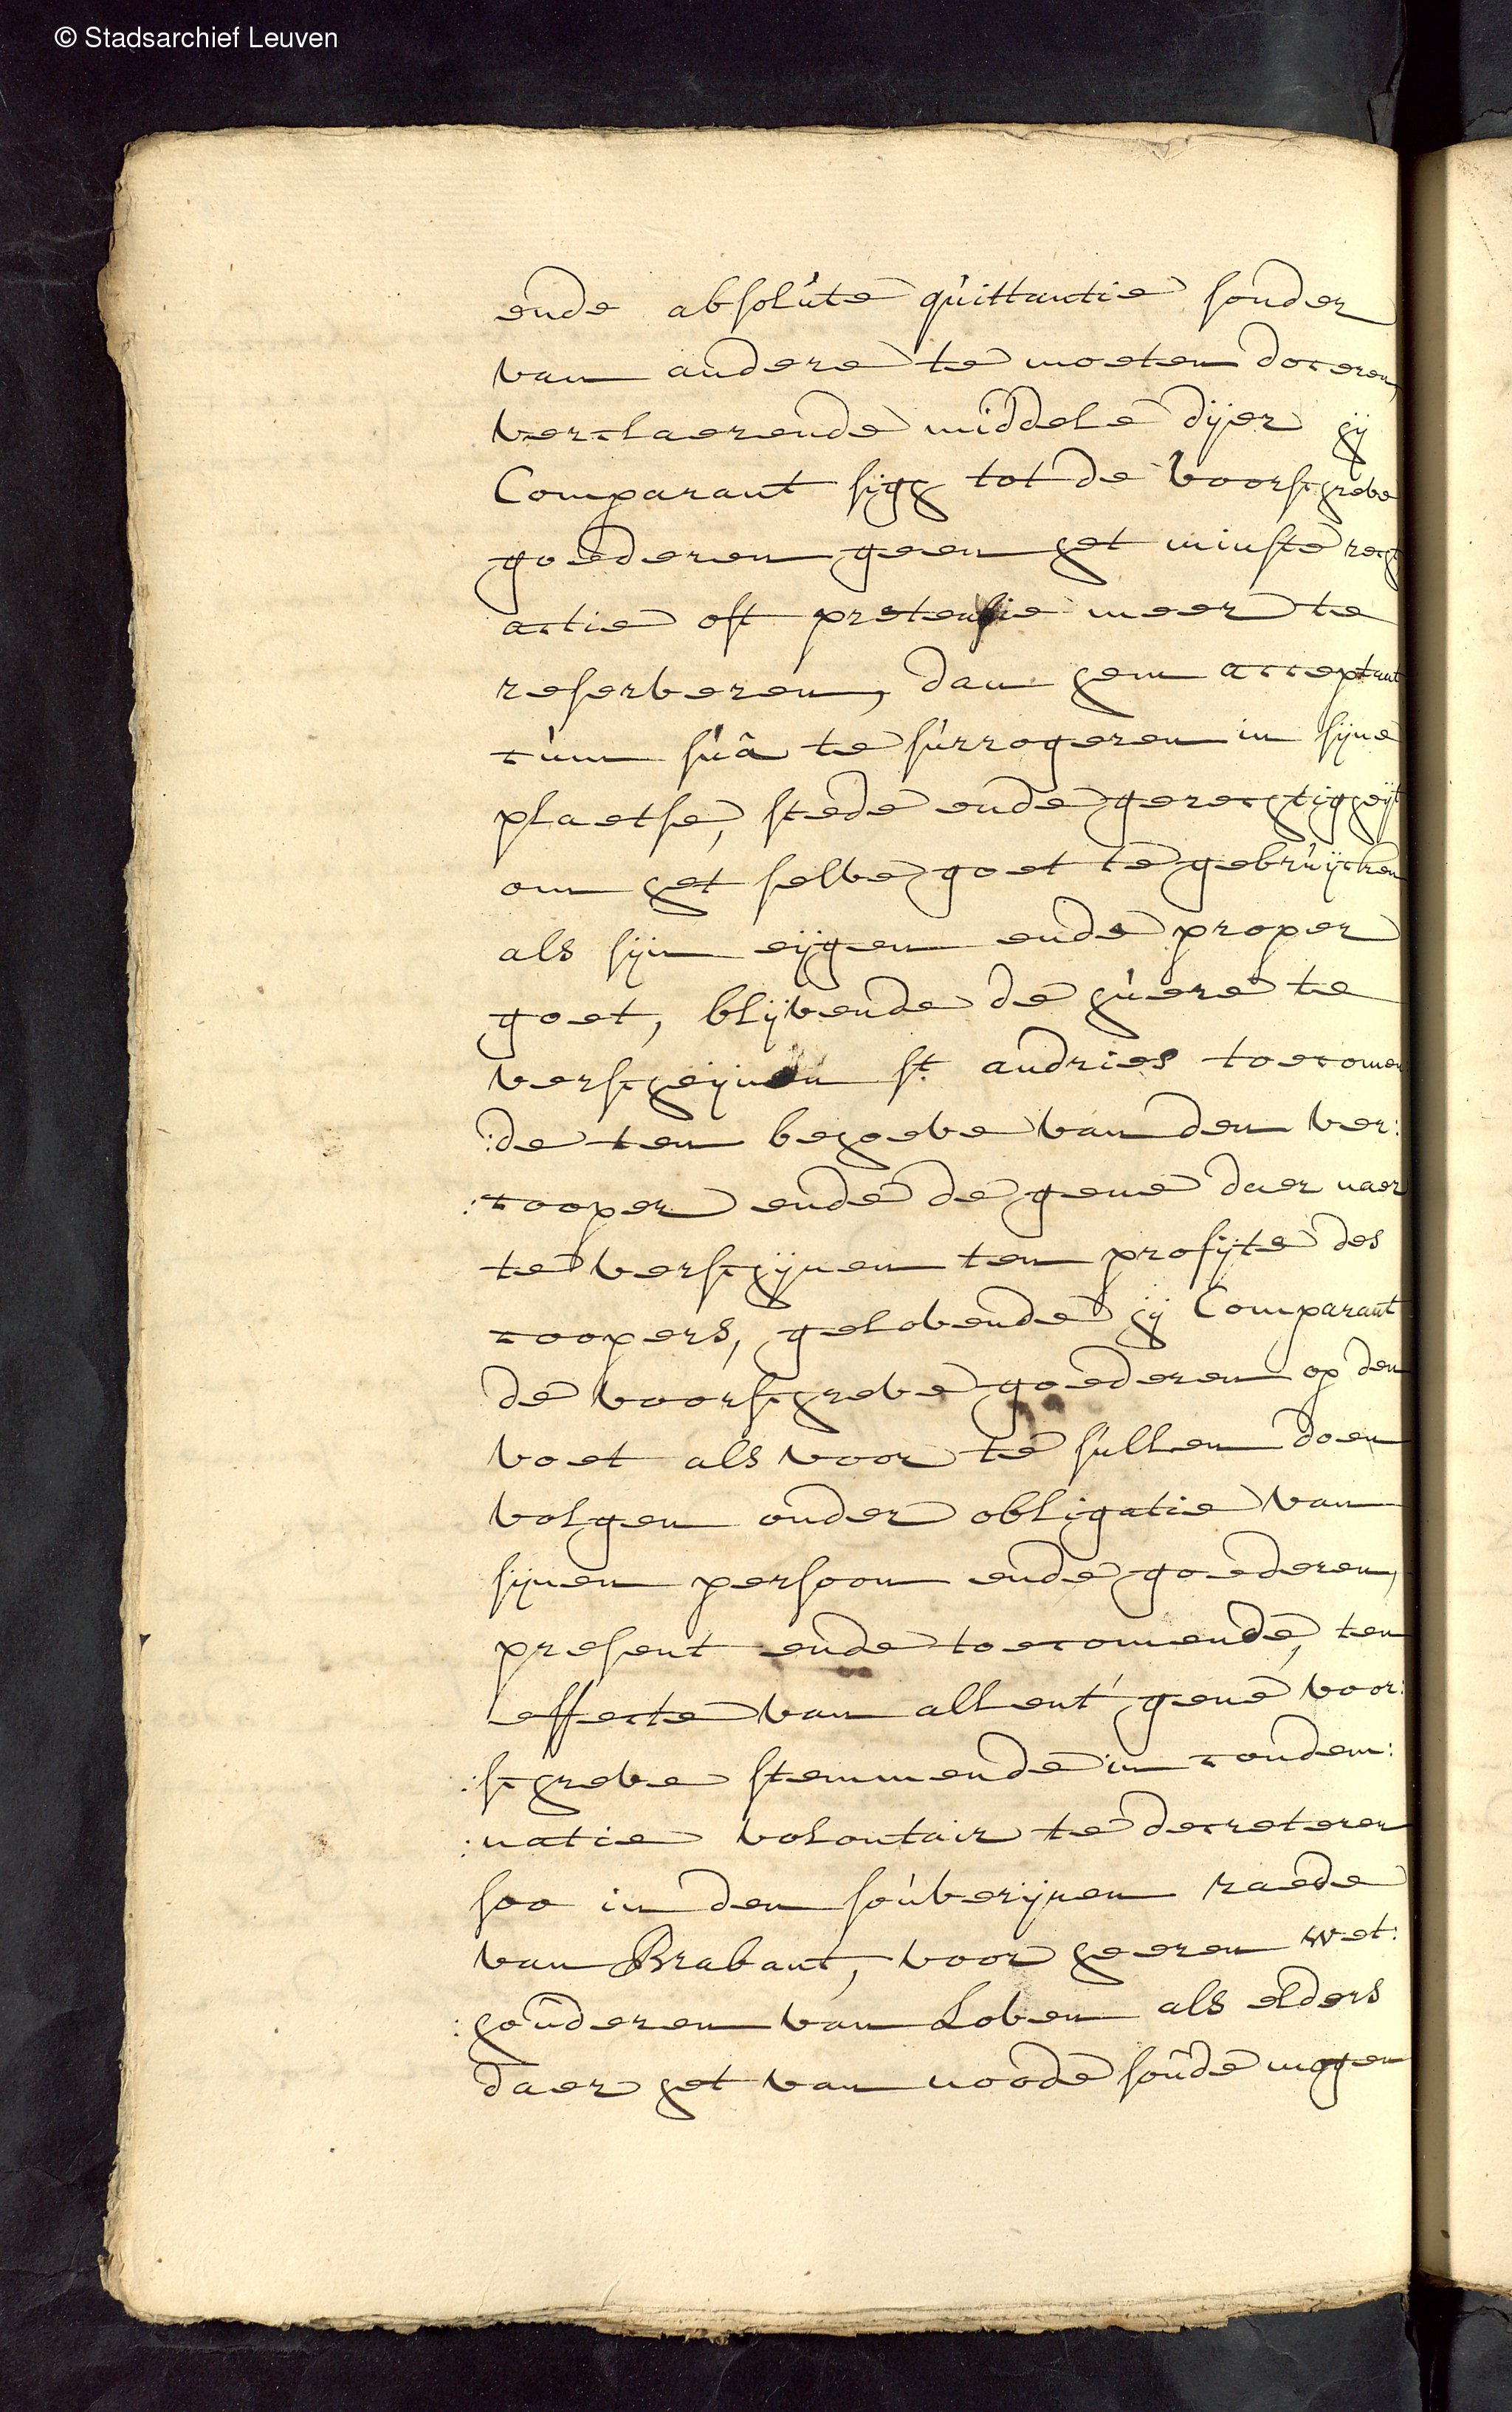 © Stadsarchief Leuven
ende absolute quittantie sonder
van andere te moeten doceren,
verclaerende middele dijer hij
Comparant sigh tot de voorschreve
goederen geen het minste recht
actie oft pretensie meer te
reserveren, dan hem acceptant
cum suâ te surrogeren in sijne
plaetse, stede ende gerechtigheijt
om het selve goet te gebruijcken
als sijn eijgen ende proper
goet, blijvende de huere te
verscheijnen st andries toecomen
:de ten behoeve van den ver:
:cooper ende de gene daer naer
te verschijnen ten profijte des
coopers, gelovende hij Comparant
de voorschreve goederen op den
voet als voor te sullen doen
volgen onder obligatie van
sijnen persoon ende goederen,
present ende toecomende, ten
effecte van allent' gene voor:
:schreve stemmende in condem:
:natie volontair te decreteren
soo in den souverijnen raede
van Brabant, voor heeren wet:
:houderen van Loven als elders
daer het van noode soude mogen